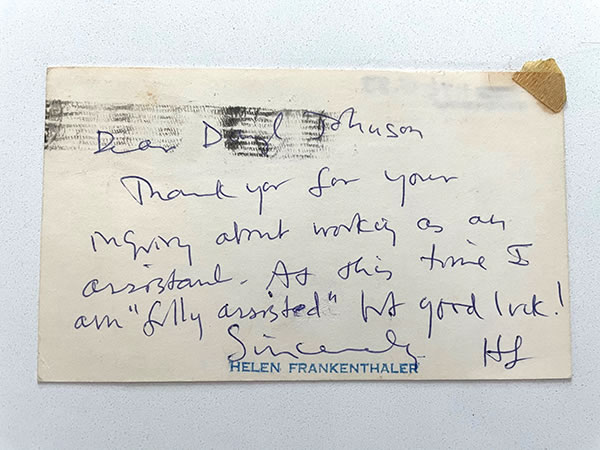 Dear Johnson
Thank you for your
inquiry about working as an
assistant. At this time I
am "fully assisted" but good luck!
Sincerely HF
HELEN FRANKENTHALER